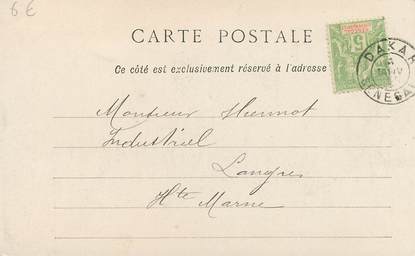 6€
CARTE POSTALE
Ce côté est exclusivement réservé à l'adresse
5
DAKAR
SÉNÉGAL
Monsieur Thermot
Industriel
Langres
Hte Marne